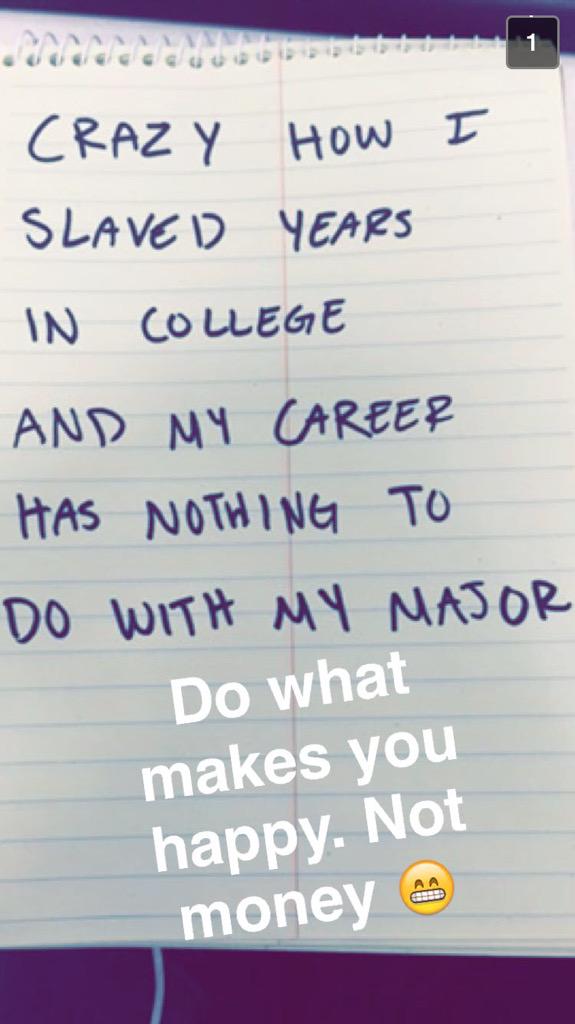 1
CRAZY HOW I
SLAVED YEARS
IN COLLEGE
AND MY CAREER
HAS NOTHING TO
DO WITH MY MAJOR
Do what
makes you
happy. Not
money 😁